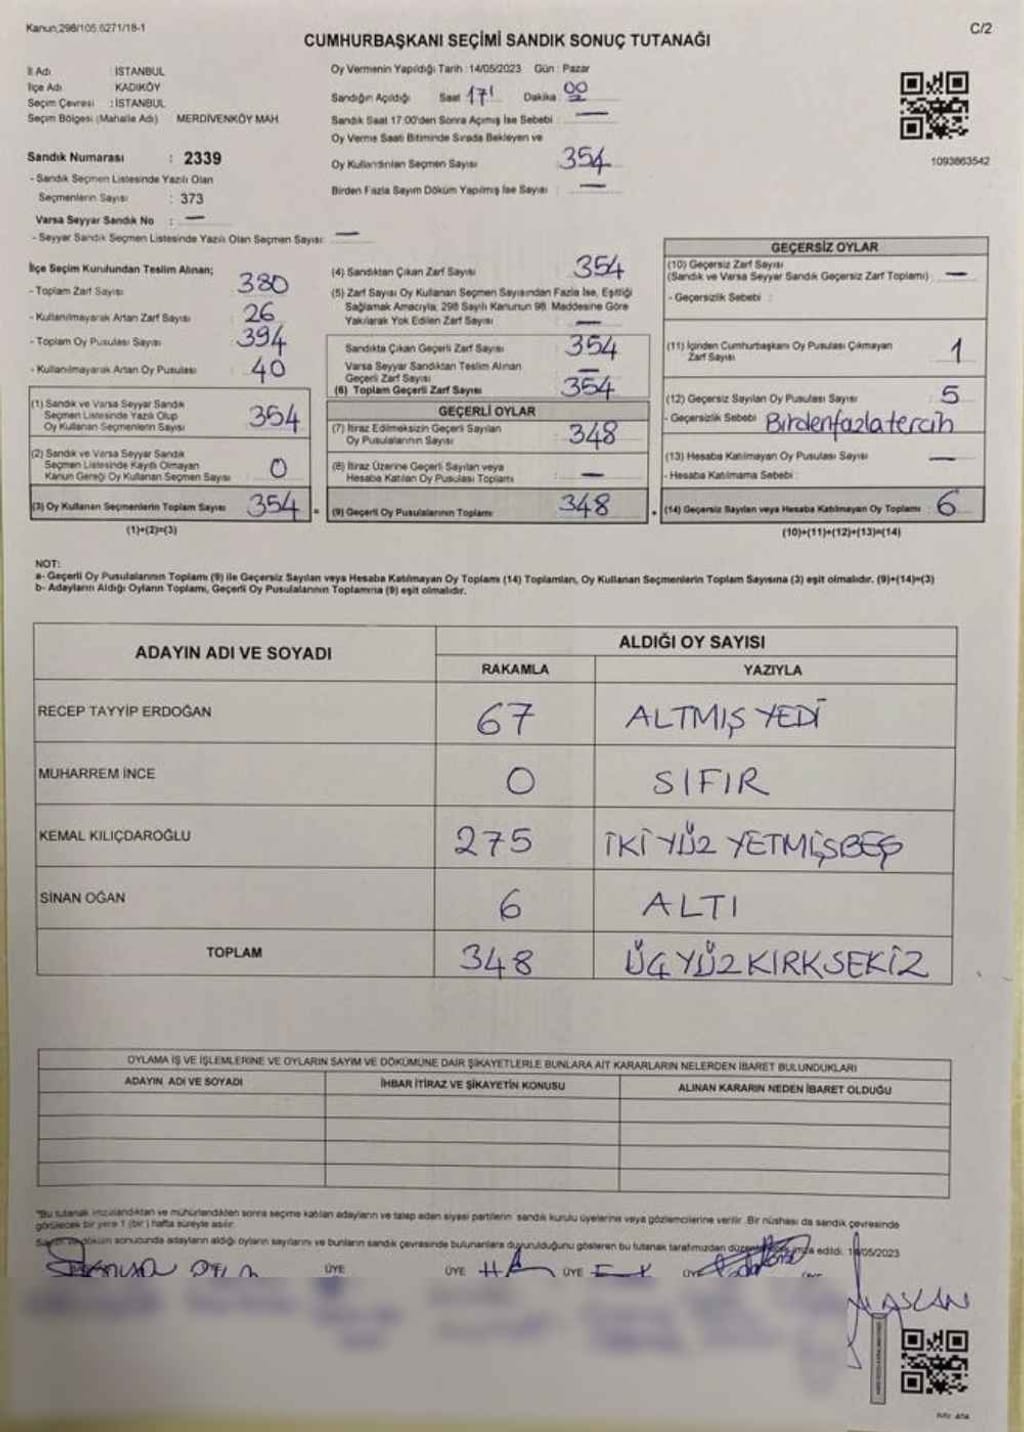 Kanun;298/105.6271/18-1
C/2
CUMHURBAŞKANI SEÇİMİ SANDIK SONUÇ TUTANAĞI
İl Adı : İSTANBUL
İlçe Adı : KADIKÖY
Seçim Çevresi : İSTANBUL
Seçim Bölgesi (Mahalle Adı) MERDİVENKÖY MAH
Sandık Numarası : 2339
- Sandık Seçmen Listesinde Yazılı Olan
Seçmenlerin Sayısı : 373
Varsa Seyyar Sandık No : —
- Seyyar Sandık Seçmen Listesinde Yazılı Olan Seçmen Sayısı: —
Oy Vermenin Yapıldığı Tarih : 14/05/2023 Gün : Pazar
Sandığın Açıldığı Saat 17 Dakika 00
Sandık Saat 17:00'den Sonra Açımış İse Sebebi : —
Oy Verme Saati Bitiminde Sırada Bekleyen ve
Oy Kullandırılan Seçmen Sayısı 354
Birden Fazla Sayım Döküm Yapılmış İse Sayısı : —
1093863542
İlçe Seçim Kurulundan Teslim Alınan;
- Toplam Zarf Sayısı : 380
- Kullanılmayarak Artan Zarf Sayısı : 26
- Toplam Oy Pusulası Sayısı : 394
- Kullanılmayarak Artan Oy Pusulası : 40
(1) Sandık ve Varsa Seyyar Sandık
Seçmen Listesinde Yazılı Olup
Oy Kullanan Seçmenlerin Sayısı 354
(2) Sandık ve Varsa Seyyar Sandık
Seçmen Listesinde Kayıtlı Olmayan
Kanun Gereği Oy Kullanan Seçmen Sayısı 0
(3) Oy Kullanan Seçmenlerin Toplam Sayısı 354
(1)+(2)=(3)
(4) Sandıktan Çıkan Zarf Sayısı : 354
(5) Zarf Sayısı Oy Kullanan Seçmen Sayısından Fazla İse, Eşitliği
Sağlamak Amacıyla; 298 Sayılı Kanunun 98. Maddesine Göre
Yakılarak Yok Edilen Zarf Sayısı : —
Sandıkta Çıkan Geçerli Zarf Sayısı : 354
Varsa Seyyar Sandıktan Teslim Alınan
Geçerli Zarf Sayısı : —
(6) Toplam Geçerli Zarf Sayısı : 354
GEÇERLİ OYLAR
(7) İtiraz Edilmeksizin Geçerli Sayılan
Oy Pusulalarının Sayısı : 348
(8) İtiraz Üzerine Geçerli Sayılan veya
Hesaba Katılan Oy Pusulası Toplamı : —
= (9) Geçerli Oy Pusulalarının Toplamı : 348
GEÇERSİZ OYLAR
(10) Geçersiz Zarf Sayısı
(Sandık ve Varsa Seyyar Sandık Geçersiz Zarf Toplamı) : —
- Geçersizlik Sebebi :
(11) İçinden Cumhurbaşkanı Oy Pusulası Çıkmayan
Zarf Sayısı : 1
(12) Geçersiz Sayılan Oy Pusulası Sayısı : 5
- Geçersizlik Sebebi : Birdenfazlatercih
(13) Hesaba Katılmayan Oy Pusulası Sayısı : —
- Hesaba Katılmama Sebebi :
+ (14) Geçersiz Sayılan veya Hesaba Katılmayan Oy Toplamı : 6
(10)+(11)+(12)+(13)=(14)
NOT:
a- Geçerli Oy Pusulalarının Toplamı (9) ile Geçersiz Sayılan veya Hesaba Katılmayan Oy Toplamı (14) Toplamları, Oy Kullanan Seçmenlerin Toplam Sayısına (3) eşit olmalıdır. (9)+(14)=(3)
b- Adayların Aldığı Oyların Toplamı, Geçerli Oy Pusulalarının Toplamına (9) eşit olmalıdır.
ADAYIN ADI VE SOYADI
ALDIĞI OY SAYISI
RAKAMLA YAZIYLA
RECEP TAYYİP ERDOĞAN 67 ALTMIŞ YEDİ
MUHARREM İNCE 0 SIFIR
KEMAL KILIÇDAROĞLU 275 İKİ YÜZ YETMİŞBEŞ
SİNAN OĞAN 6 ALTI
TOPLAM 348 ÜÇ YÜZ KIRKSEKİZ
OYLAMA İŞ VE İŞLEMLERİNE VE OYLARIN SAYIM VE DÖKÜMÜNE DAİR ŞİKAYETLERLE BUNLARA AİT KARARLARIN NELERDEN İBARET BULUNDUKLARI
ADAYIN ADI VE SOYADI İHBAR İTİRAZ VE ŞİKAYETİN KONUSU ALINAN KARARIN NEDEN İBARET OLDUĞU
"Bu tutanak imzalandıktan ve mühürlendikten sonra seçime katılan adayların ve talep eden siyasi partilerin sandık kurulu üyelerine veya gözlemcilerine verilir. Bir nüshası da sandık çevresinde
görülecek bir yere 1 (bir) hafta süreyle asılır.
Sayım ve döküm sonucunda adayların aldığı oyların sayılarını ve bunların sandık çevresinde bulunanlara duyurulduğunu gösteren bu tutanak tarafımızdan edildi. 14/05/2023
ÜYE ÜYE ÜYE ÜYE
ASLAN